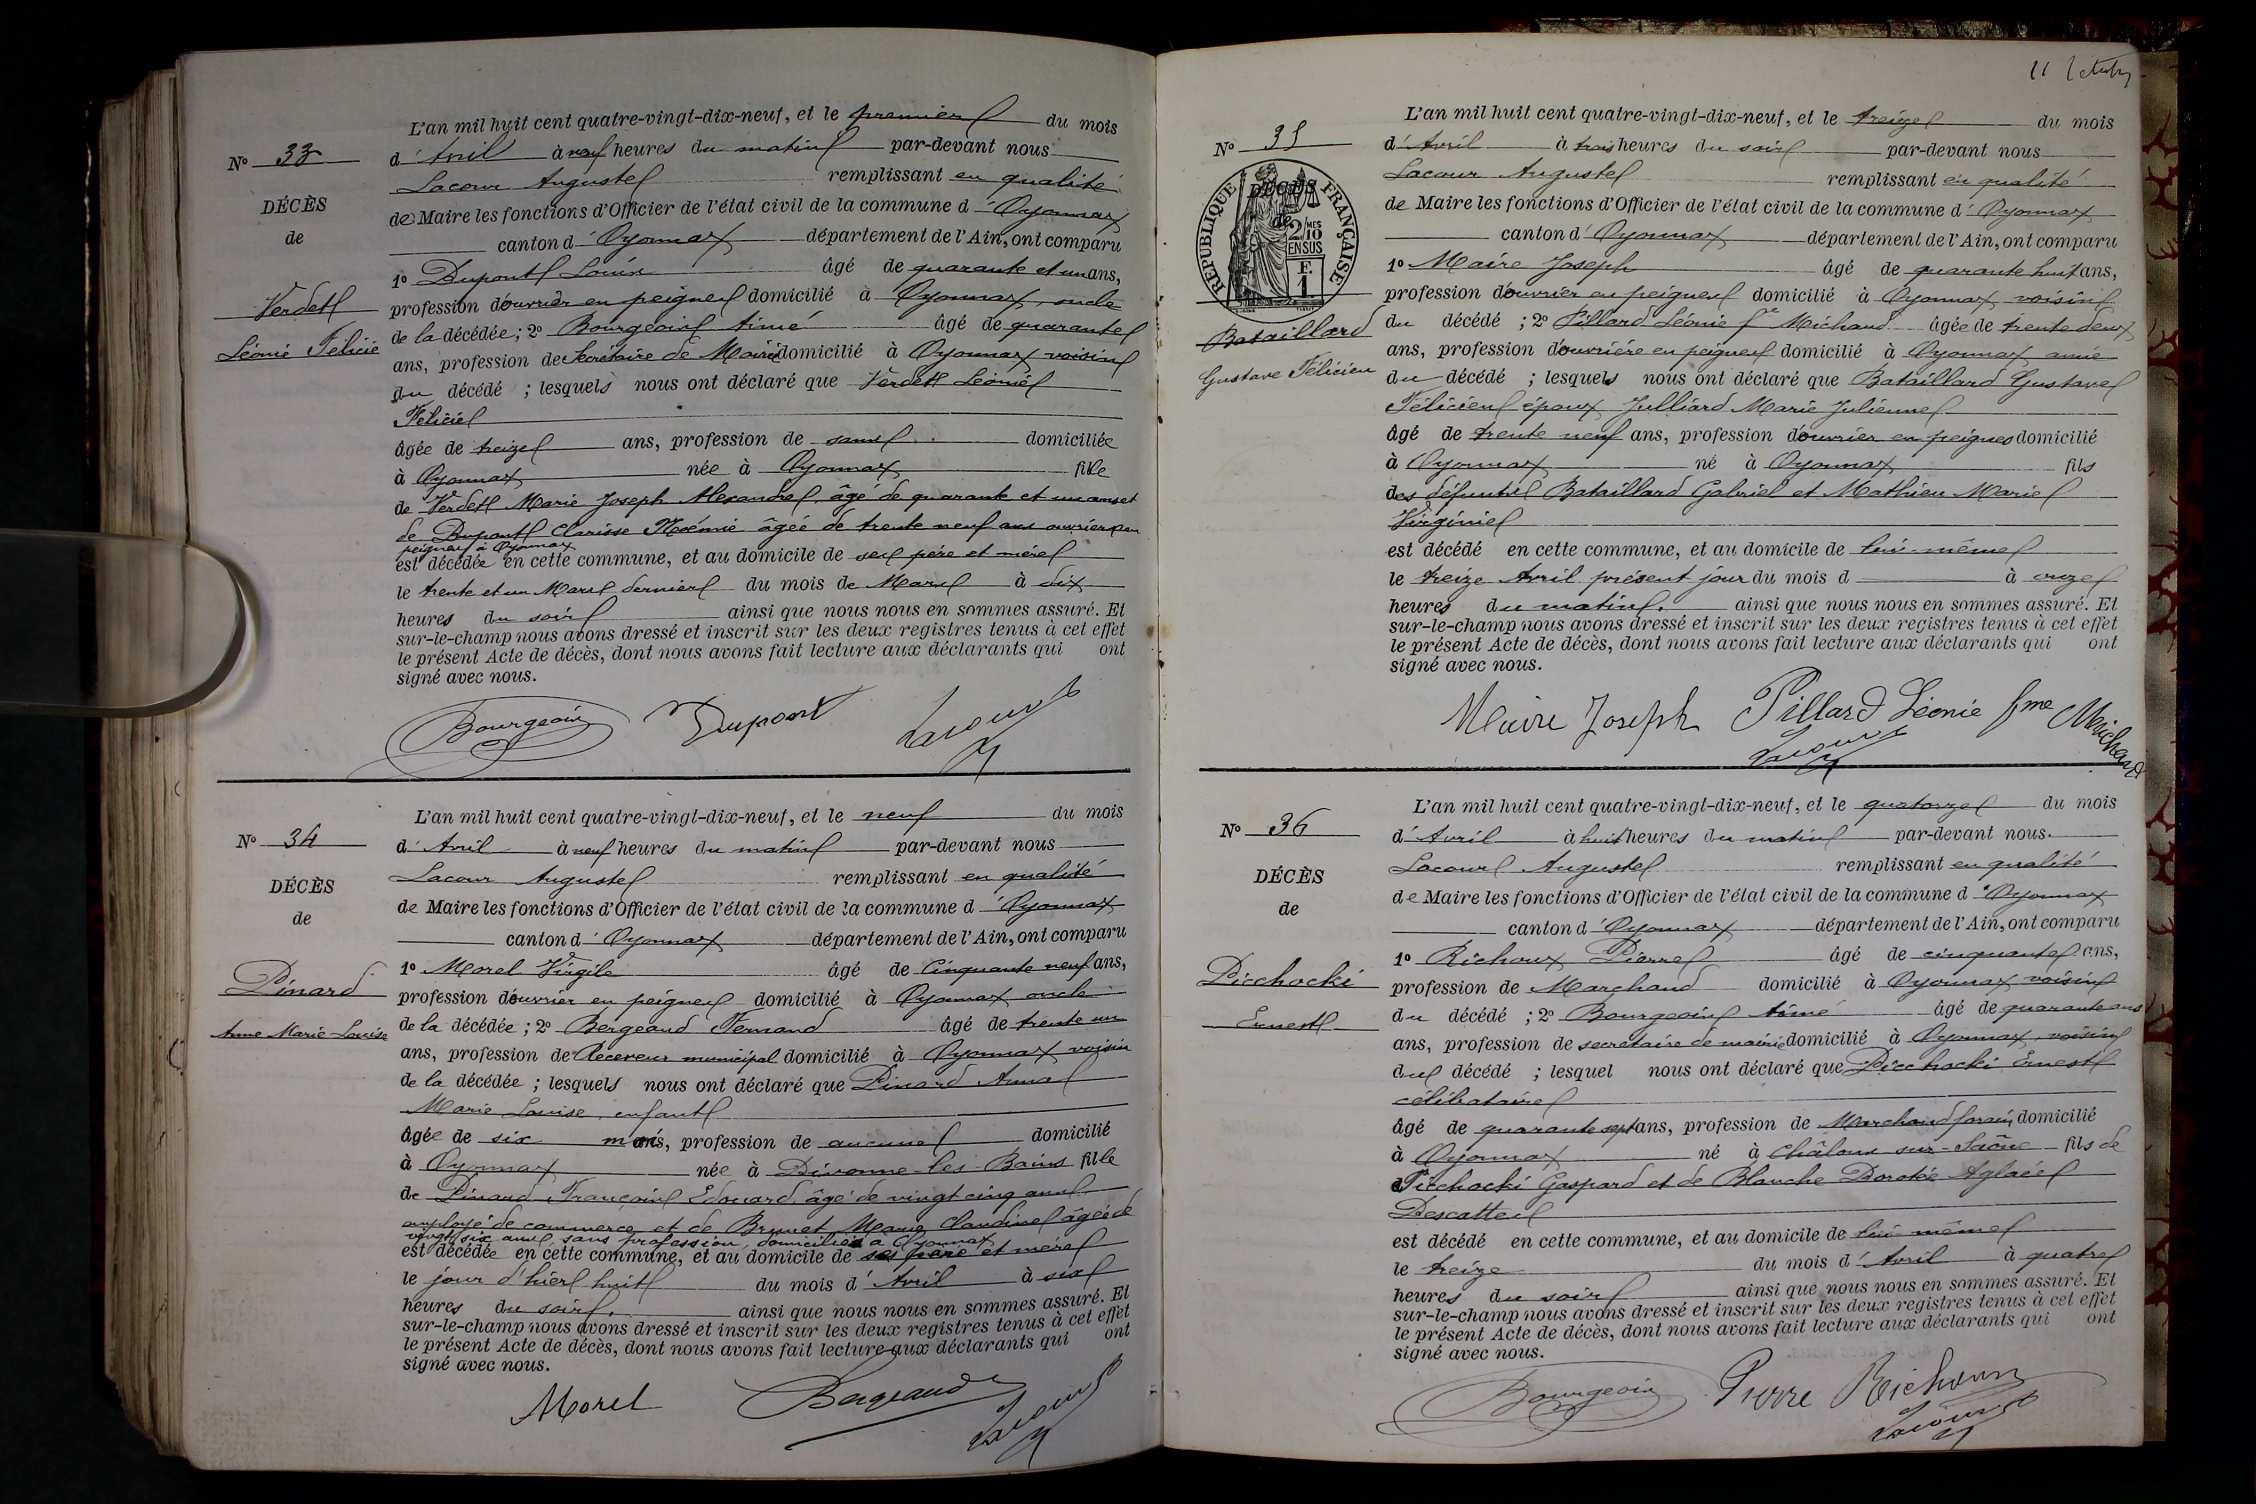 L'an mil huit cent quatre-vingt-dix-neuf, et le premier du mois
No 33
d'Avril à neuf heures du matin par-devant nous
Lacour Auguste remplissant en qualité
DÉCÈS
de Maire les fonctions d'Officier de l'état civil de la commune d'Oyonnax
de
canton d'Oyonnax département de l'Ain, ont comparu
1o Dupont Louis âgé de quarante et un ans,
Verdet
profession d'ouvrier en peignes domicilié à Oyonnax, oncle
de la décédée; 2o Bourgeois Aimé âgé de quarante
Léonie Félicie
ans, profession de Secrétaire de Mairie domicilié à Oyonnax voisin
du décédé ; lesquels nous ont déclaré que Verdet Léonie
Félicie
âgée de treize ans, profession de sans domiciliée
à Oyonnax née à Oyonnax fille
de Verdet Marie Joseph Alexandre âgé de quarante et un ans et
de Dupont Clarisse Noémie âgée de trente neuf ans ouvriers en
peignes à Oyonnax
est décédée en cette commune, et au domicile de ses père et mère
le trente et un Mars dernier du mois de Mars à dix
heures du soir ainsi que nous nous en sommes assuré. Et
sur-le-champ nous avons dressé et inscrit sur les deux registres tenus à cet effet
le présent Acte de décès, dont nous avons fait lecture aux déclarants qui ont
signé avec nous.
Bourgeois Dupont Lacour
L'an mil huit cent quatre-vingt-dix-neuf, et le neuf du mois
No 34
d'Avril à neuf heures du matin par-devant nous
Lacour Auguste remplissant en qualité
DÉCÈS
de Maire les fonctions d'Officier de l'état civil de la commune d'Oyonnax
de
canton d'Oyonnax département de l'Ain, ont comparu
1o Morel Virgile âgé de Cinquante neuf ans,
Pinard
profession d'ouvrier en peignes domicilié à Oyonnax oncle
Anne Marie Louise
de la décédée; 2o Bergeaud Fernand âgé de trente un
ans, profession de Receveur municipal domicilié à Oyonnax voisin
de la décédée ; lesquels nous ont déclaré que Pinard Anna
Marie Louise, enfant
âgée de six mois, profession de aucune domicilié
à Oyonnax née à Divonne-les-Bains fille
de Pinard François Edouard âgé de vingt cinq ans
employé de commerce et de Brunet Marie Claudine âgée de
vingt six ans sans profession, domiciliés à Oyonnax
est décédée en cette commune, et au domicile de ses père et mère
le jour d'hier huit du mois d'Avril à six
heures du soir. ainsi que nous nous en sommes assuré. Et
sur-le-champ nous avons dressé et inscrit sur les deux registres tenus à cet effet
le présent Acte de décès, dont nous avons fait lecture aux déclarants qui ont
signé avec nous.
Morel Bergeaud Lacour
11
L'an mil huit cent quatre-vingt-dix-neuf, et le treize du mois
No 35
d'Avril à trois heures du soir par-devant nous
Lacour Auguste remplissant en qualité
DÉCÈS
de
RÉPUBLIQUE FRANÇAISE
2/10 MES
EN SUS
F.
1
de Maire les fonctions d'Officier de l'état civil de la commune d'Oyonnax
canton d'Oyonnax département de l'Ain, ont comparu
1o Maire Joseph âgé de quarante huit ans,
profession d'ouvrier en peignes domicilié à Oyonnax voisin
Bataillard
du décédé ; 2o Pillard Léonie fe Michaud âgée de trente deux
Gustave Félicien
ans, profession d'ouvrière en peignes domicilié à Oyonnax amie
du décédé ; lesquels nous ont déclaré que Bataillard Gustave
Félicien époux Julliard Marie Julienne
âgé de trente neuf ans, profession d'ouvrier en peignes domicilié
à Oyonnax né à Oyonnax fils
des défunts Bataillard Gabriel et Mathieu Marie
Virginie
est décédé en cette commune, et au domicile de lui-même
le treize Avril présent jour du mois d à onze
heures du matin. ainsi que nous nous en sommes assuré. Et
sur-le-champ nous avons dressé et inscrit sur les deux registres tenus à cet effet
le présent Acte de décès, dont nous avons fait lecture aux déclarants qui ont
signé avec nous.
Maire Joseph Pillard Léonie fme Michaud
Lacour
L'an mil huit cent quatre-vingt-dix-neuf, et le quatorze du mois
No 36
d'Avril à huit heures du matin par-devant nous
Lacour Auguste remplissant en qualité
DÉCÈS
de Maire les fonctions d'Officier de l'état civil de la commune d'Oyonnax
de
canton d'Oyonnax département de l'Ain, ont comparu
1o Richoux Pierre âgé de cinquante ans,
Picchocki
profession de Marchand domicilié à Oyonnax voisin
du décédé ; 2o Bourgeois Aimé âgé de quarante ans
Ernest
ans, profession de secrétaire de mairie domicilié à Oyonnax, voisin
du décédé ; lesquel nous ont déclaré que Picchocki Ernest
célibataire
âgé de quarante sept ans, profession de Marchand forain, domicilié
à Oyonnax né à Châlons sur-Saône fils de
Picchocki Gaspard et de Blanche Dorotée Aglaée
Descatteil
est décédé en cette commune, et au domicile de lui-même
le treize du mois d'Avril à quatre
heures du soir ainsi que nous nous en sommes assuré. Et
sur-le-champ nous avons dressé et inscrit sur les deux registres tenus à cet effet
le présent Acte de décès, dont nous avons fait lecture aux déclarants qui ont
signé avec nous.
Bourgeois Pierre Richoux
Lacour